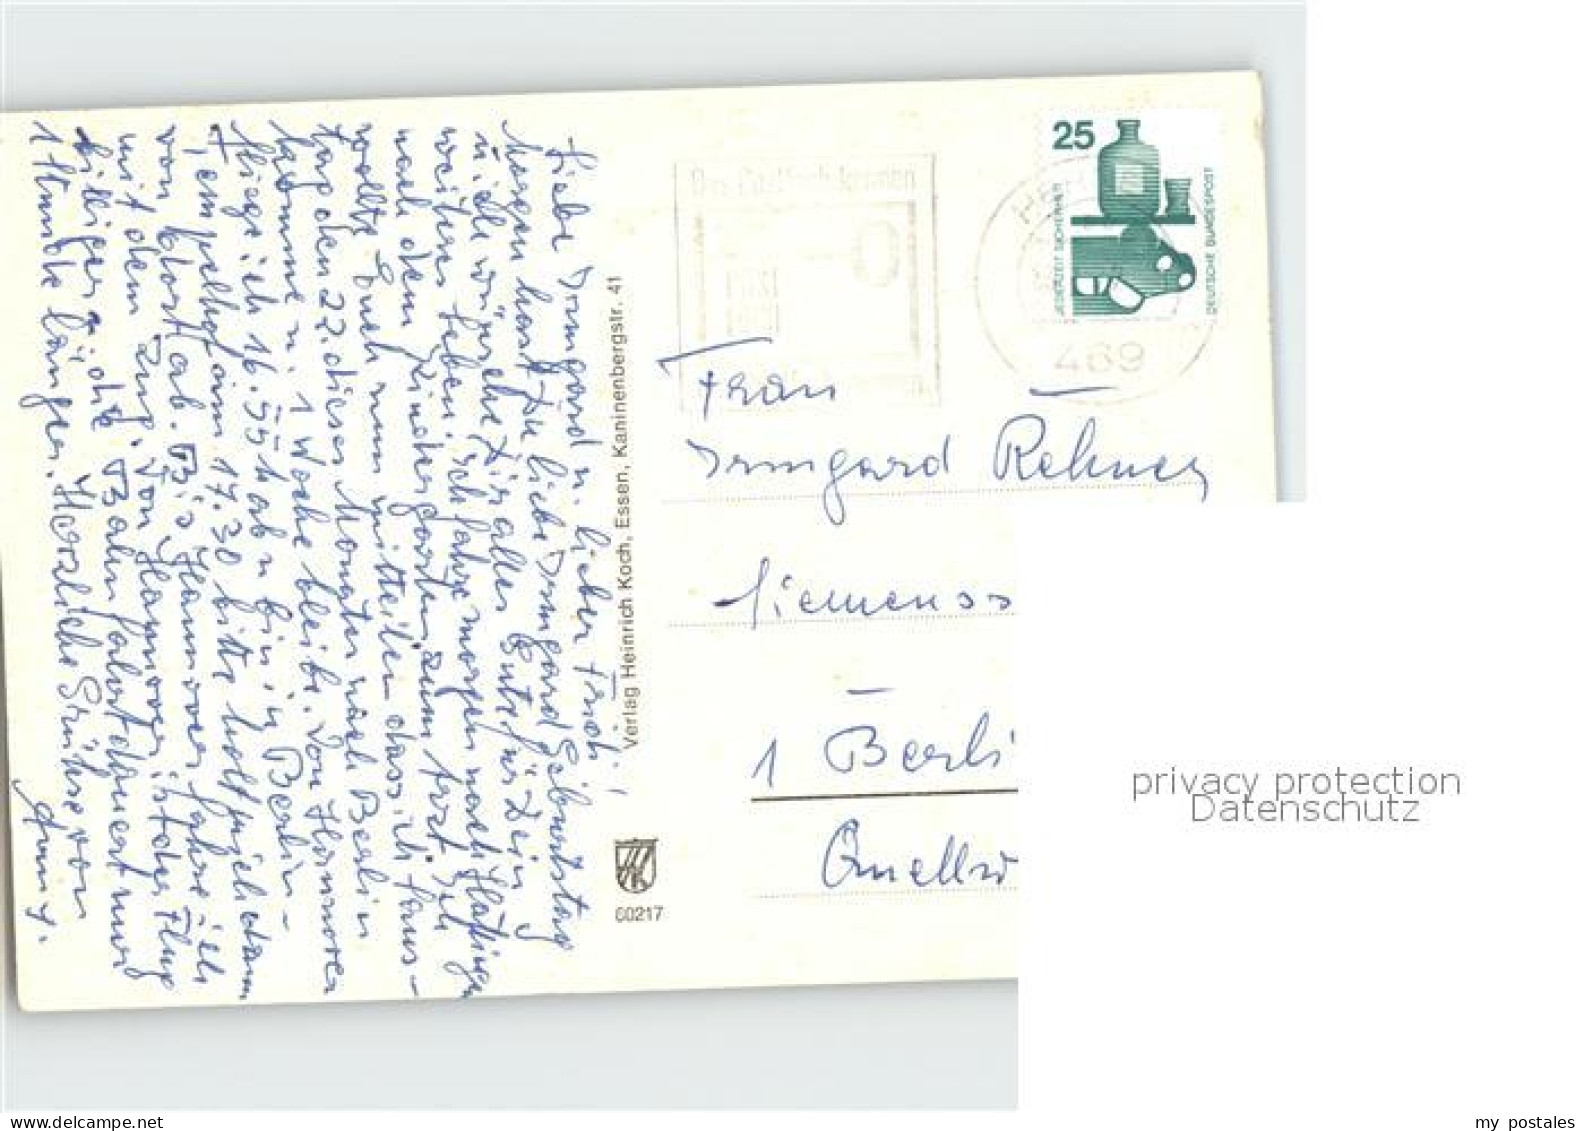 Liebe Irmgard u. lieber Erich!
Morgen hast Du liebe Irmgard Geburtstag
u. ich wünsche Dir alles Gute für Dein
weiteres Leben. Ich fahre morgen nach
nach dem Kindergarten zum Arzt. Ich
wollte Euch nun mitteilen dass ich
den 22. dieses Monates nach Berlin
komme u. 1 Woche bleibe. Von Hannover
fliege ich 16.55 h ab u. bin in Berlin-
Tempelhof um 17.30 bitte holt mich dann
von dort ab. Bis Hannover fahre ich
mit dem Zug. Von Hannover ist der Flug
billiger u. die Bahnfahrt dauert nur
1 Stunde länger. Herzliche Grüße von
Verlag Heinrich Koch, Essen, Kaninenbergstr. 41
60217
25
JEDERZEIT SICHERHEIT
DEUTSCHE BUNDESPOST
469
Frau
Irmgard
Siemenss
1 Berli
Quellw
privacy protection
Datenschutz
my postales